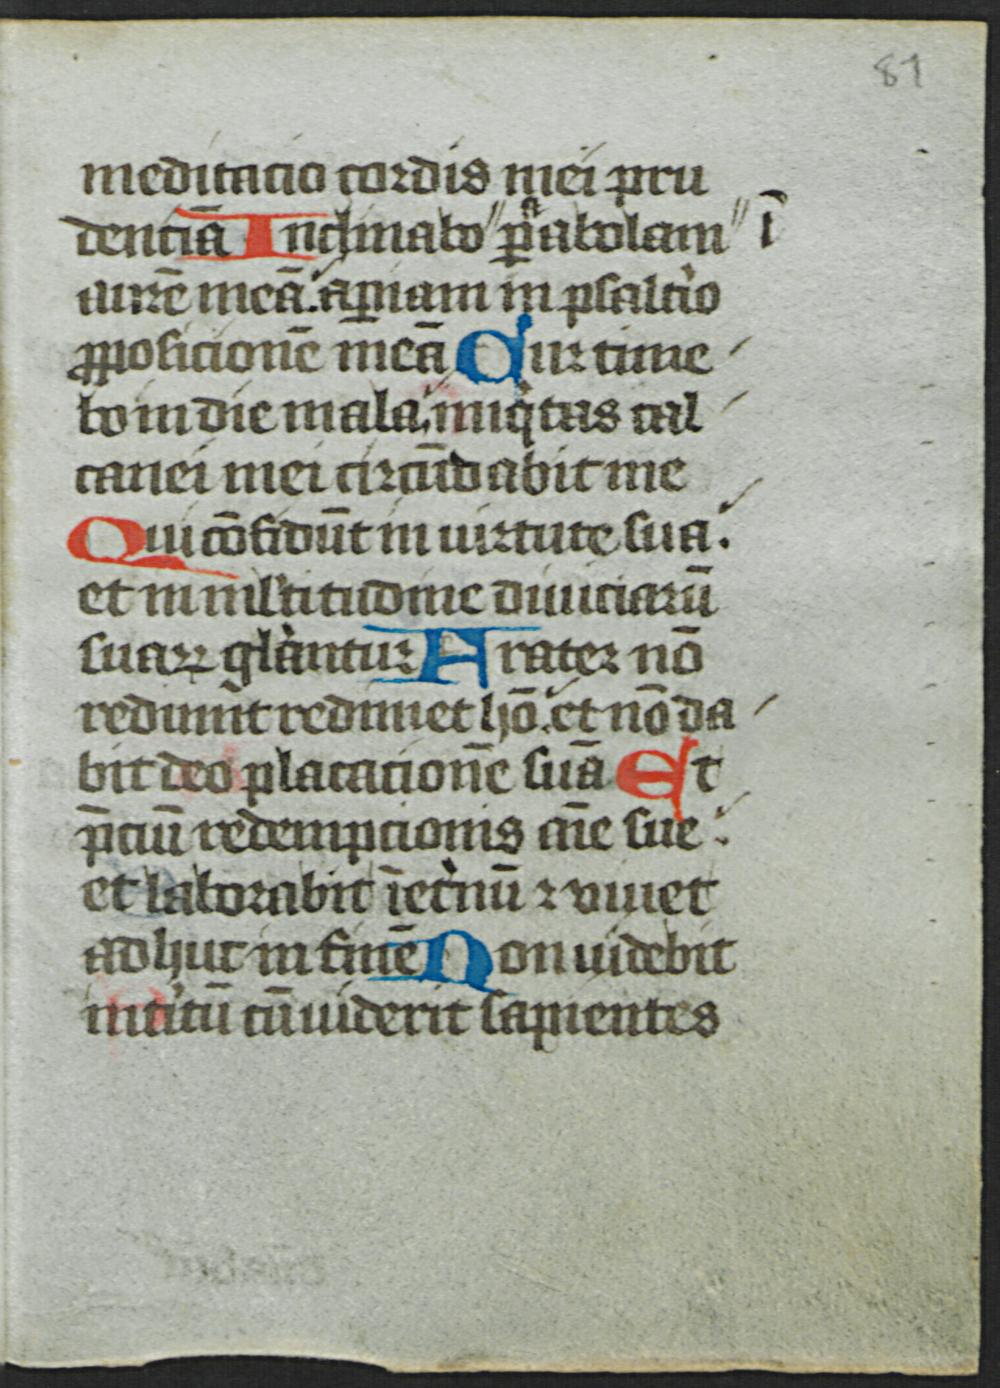 81
meditacio cordis mei pru
denciā Inclinabo " parabolam " ī
aurē meā. apiam in psaltio
ꝓposicionē meā Cur time
bo in die mala, iniqitas cal
canei mei circūdabit me
Qui cōfidūt in uirtute sua.
et in mltitudine diuiciarū
suaꝝ gliantur Frater nō
redimit redimet hō. et nō da
bit deo placacionē suā Et
p̄ciū redempcionis aīe sue :
et laborabit ī etnū ⁊ viuet
adhuc in finē Non uidebit
intitū cū uiderit sapientes